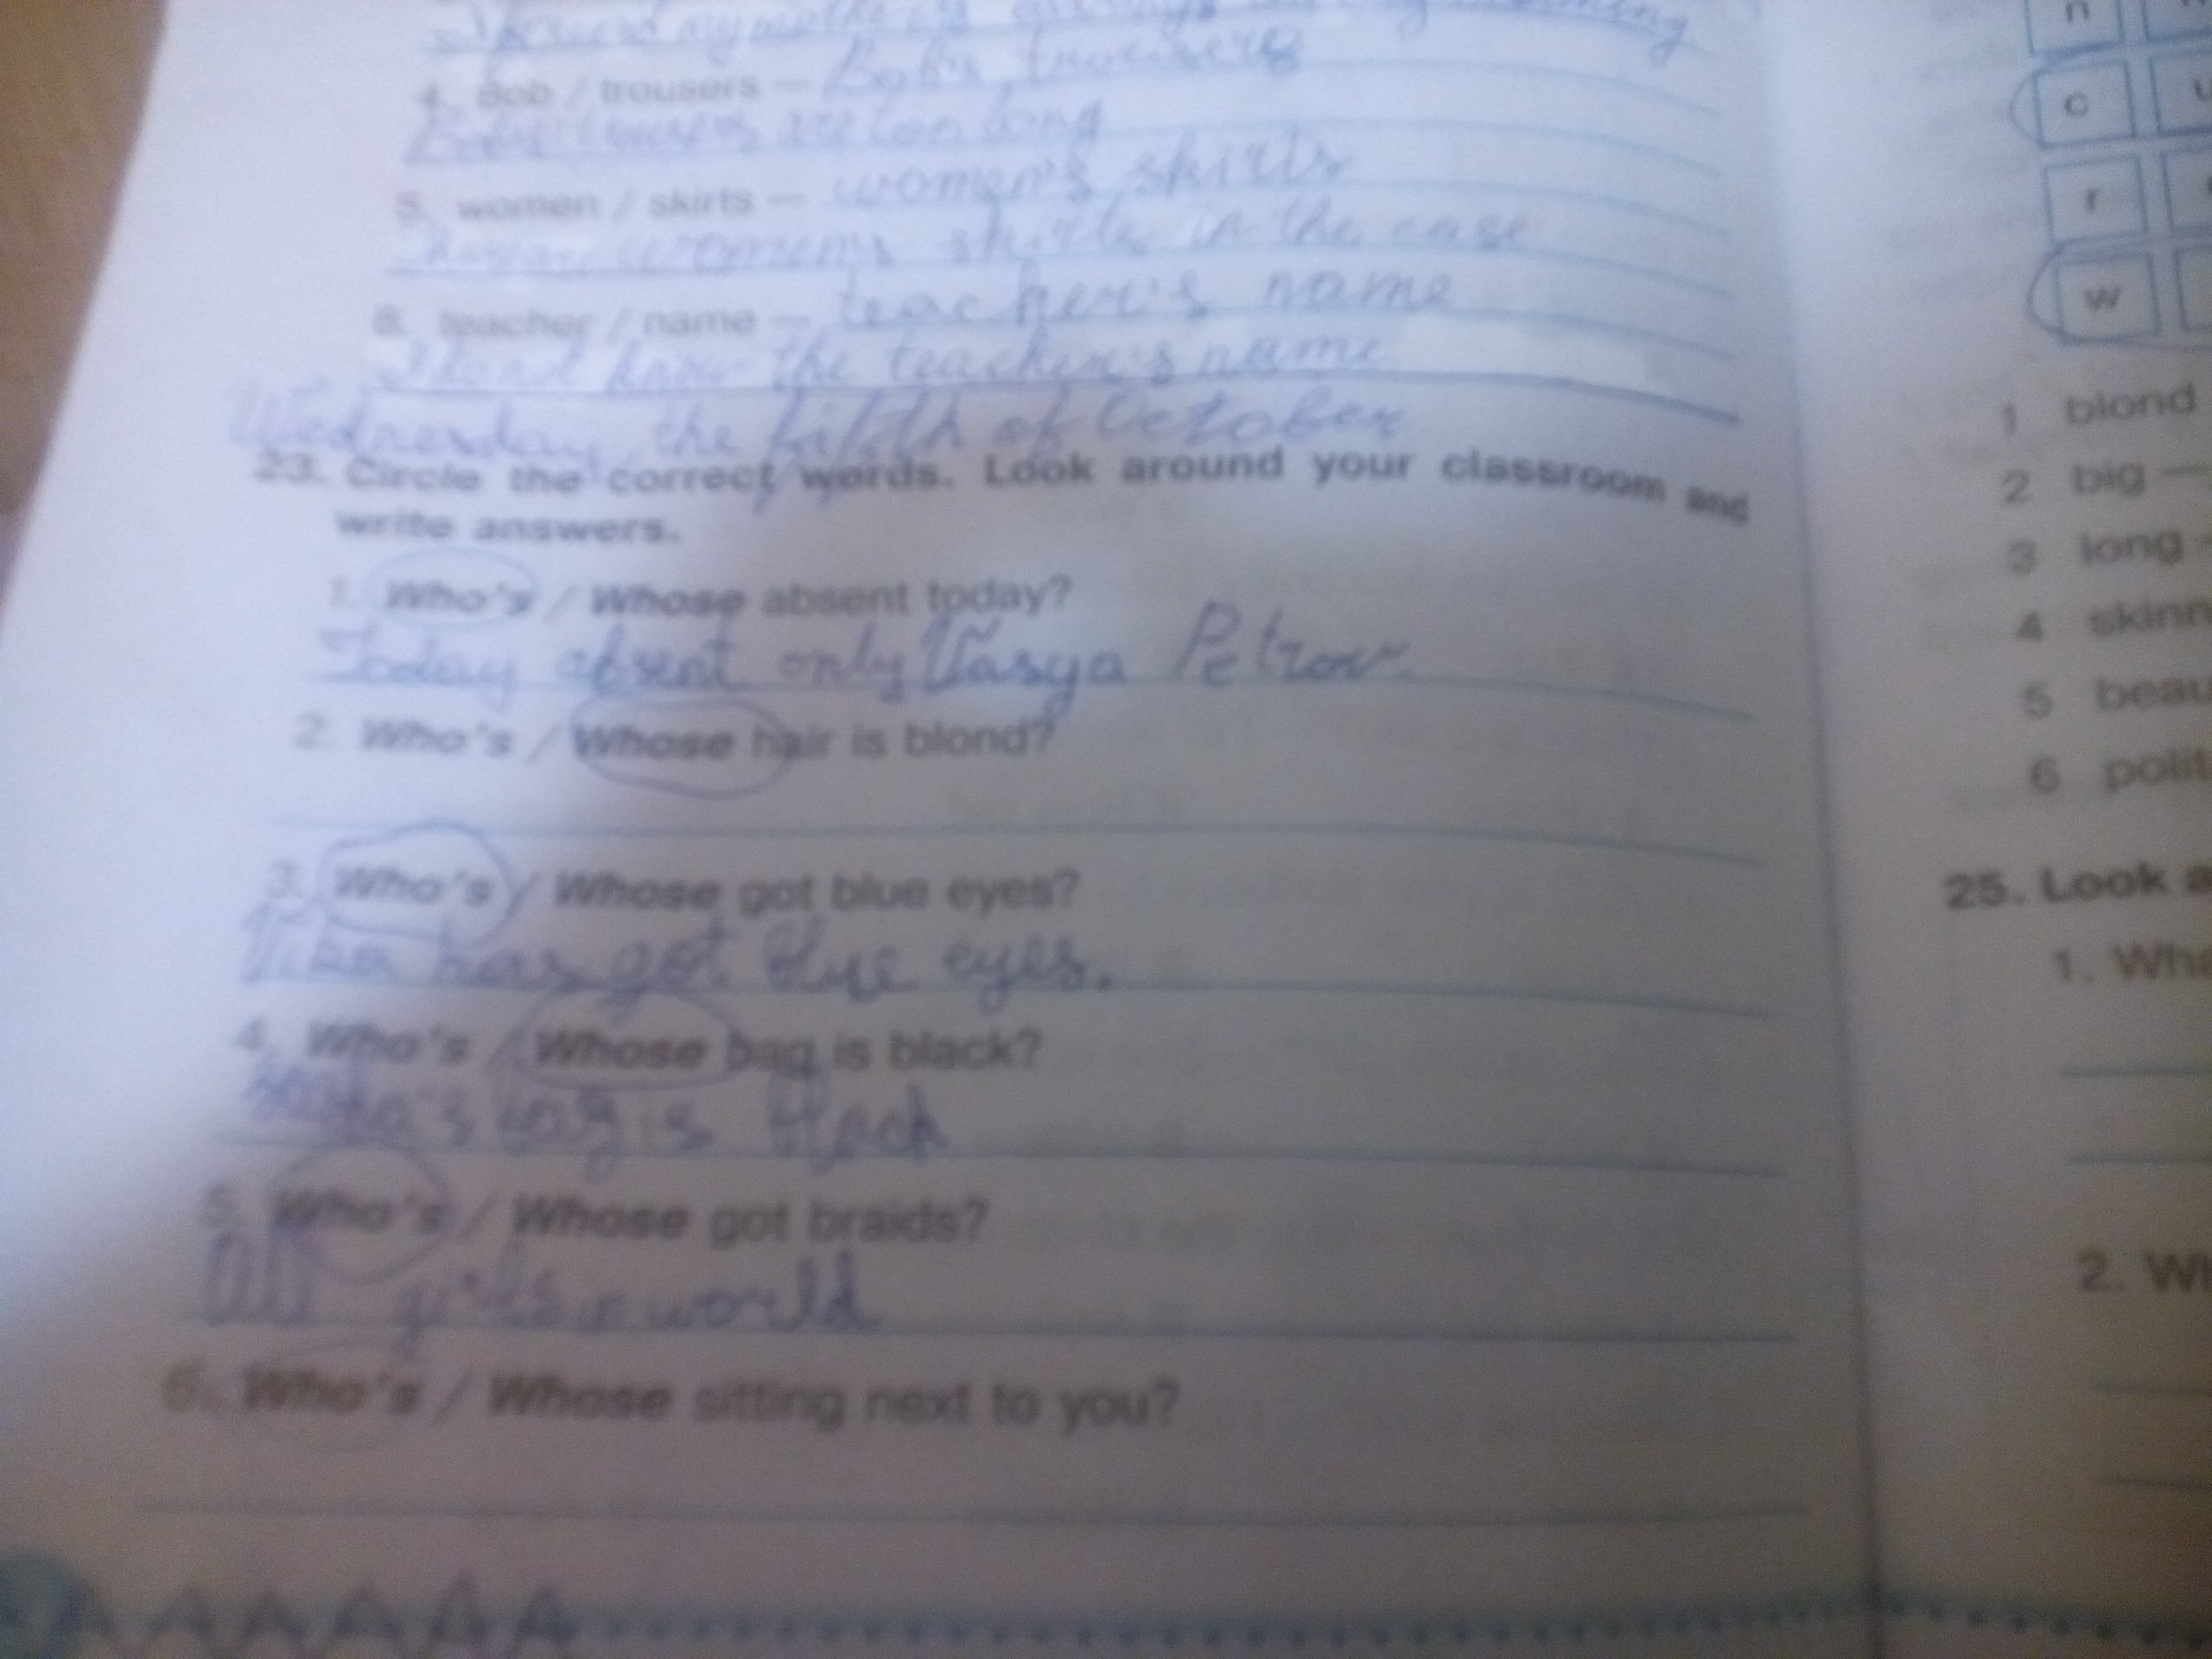 my mother's
4. Bob / trousers — Bob's trousers
trousers are too long
5. women / skirts — women's skirts
women's skirts in the case
6. teacher / name — teacher's name
I do not know the teacher's name
Wednesday, the fifth of October
23. Circle the correct words. Look around your classroom and
write answers.
1. Who's / Whose absent today?
Today absent only Vasya Petrov.
2. Who's / Whose hair is blond?
3. Who's / Whose got blue eyes?
Vika has got blue eyes.
4. Who's / Whose bag is black?
bag is black
5. Who's / Whose got braids?
All girls world
6. Who's / Whose sitting next to you?
n
c u
r
w
1 blond
2 big —
3 long -
4 skinn
5 beau
6 polit
25. Look a
1. Wha
2. Wh